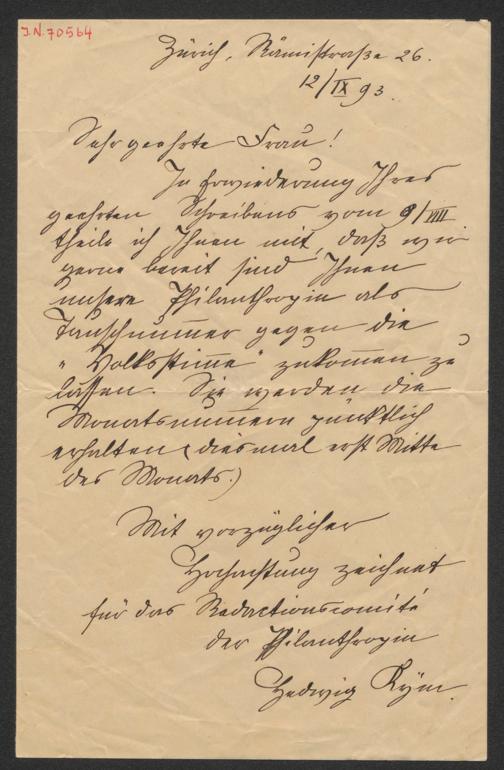 J.N. 70564
Zürich, Rämistraße 26.
12/IX 93.
Sehr geehrte Frau!
In Erwiederung Ihres
geehrten Schreibens vom 9/VIII
theile ich Ihnen mit, daß wir
gerne bereit sind Ihnen
unsere Philanthropin als
Tauschnum̅er gegen die
"Volksstim̅e" zukom̅en zu
lassen. Sie werden die
Monatsnum̅ern pünktlich
erhalten (diesmal erst Mitte
des Monats.)
Mit vorzüglicher
Hochachtung zeichnet
für das Redactionscomité
der Philanthropin
Hedwig Kym.